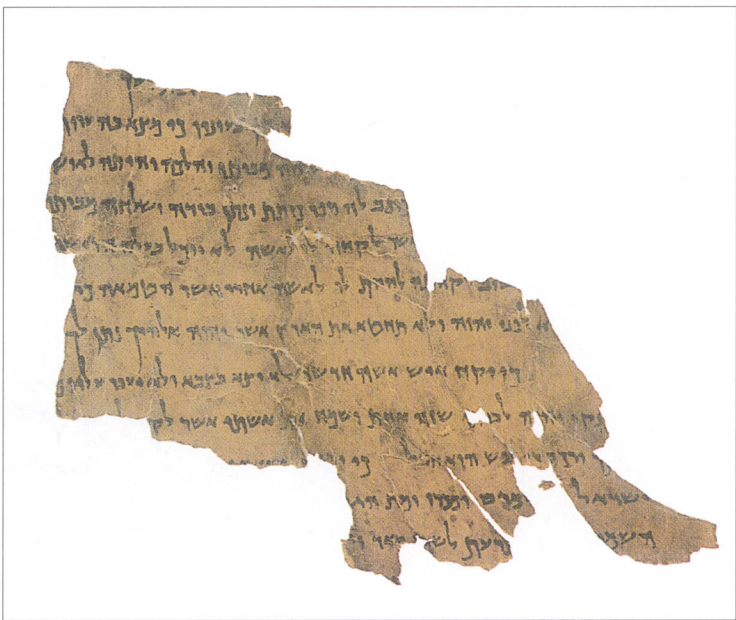 בעיניו כי מצא בה ערות
מביתו והלכה והיתה לאיש
וכתב לה ספר כריתת ונתן בידה ושלחה מביתו
אשר לקחה לו לאשה לא יוכל בעלה הראשון
לשוב לקחתה להיות לו לאשה אחרי אשר הטמאה כי
לפני יהוה ולא תחטא את הארץ אשר יהוה אלהיך נתן לך
כי יקח איש אשה חדשה לא יצא בצבא ולא יעבר עליו
נקי יהיה לביתו שנה אחת ושמח את אשתו אשר לקח
ורכב כי נפש הוא חבל כי
ישראל ומכרו ומת הגנב
השמר הצרעת לשמר מאד